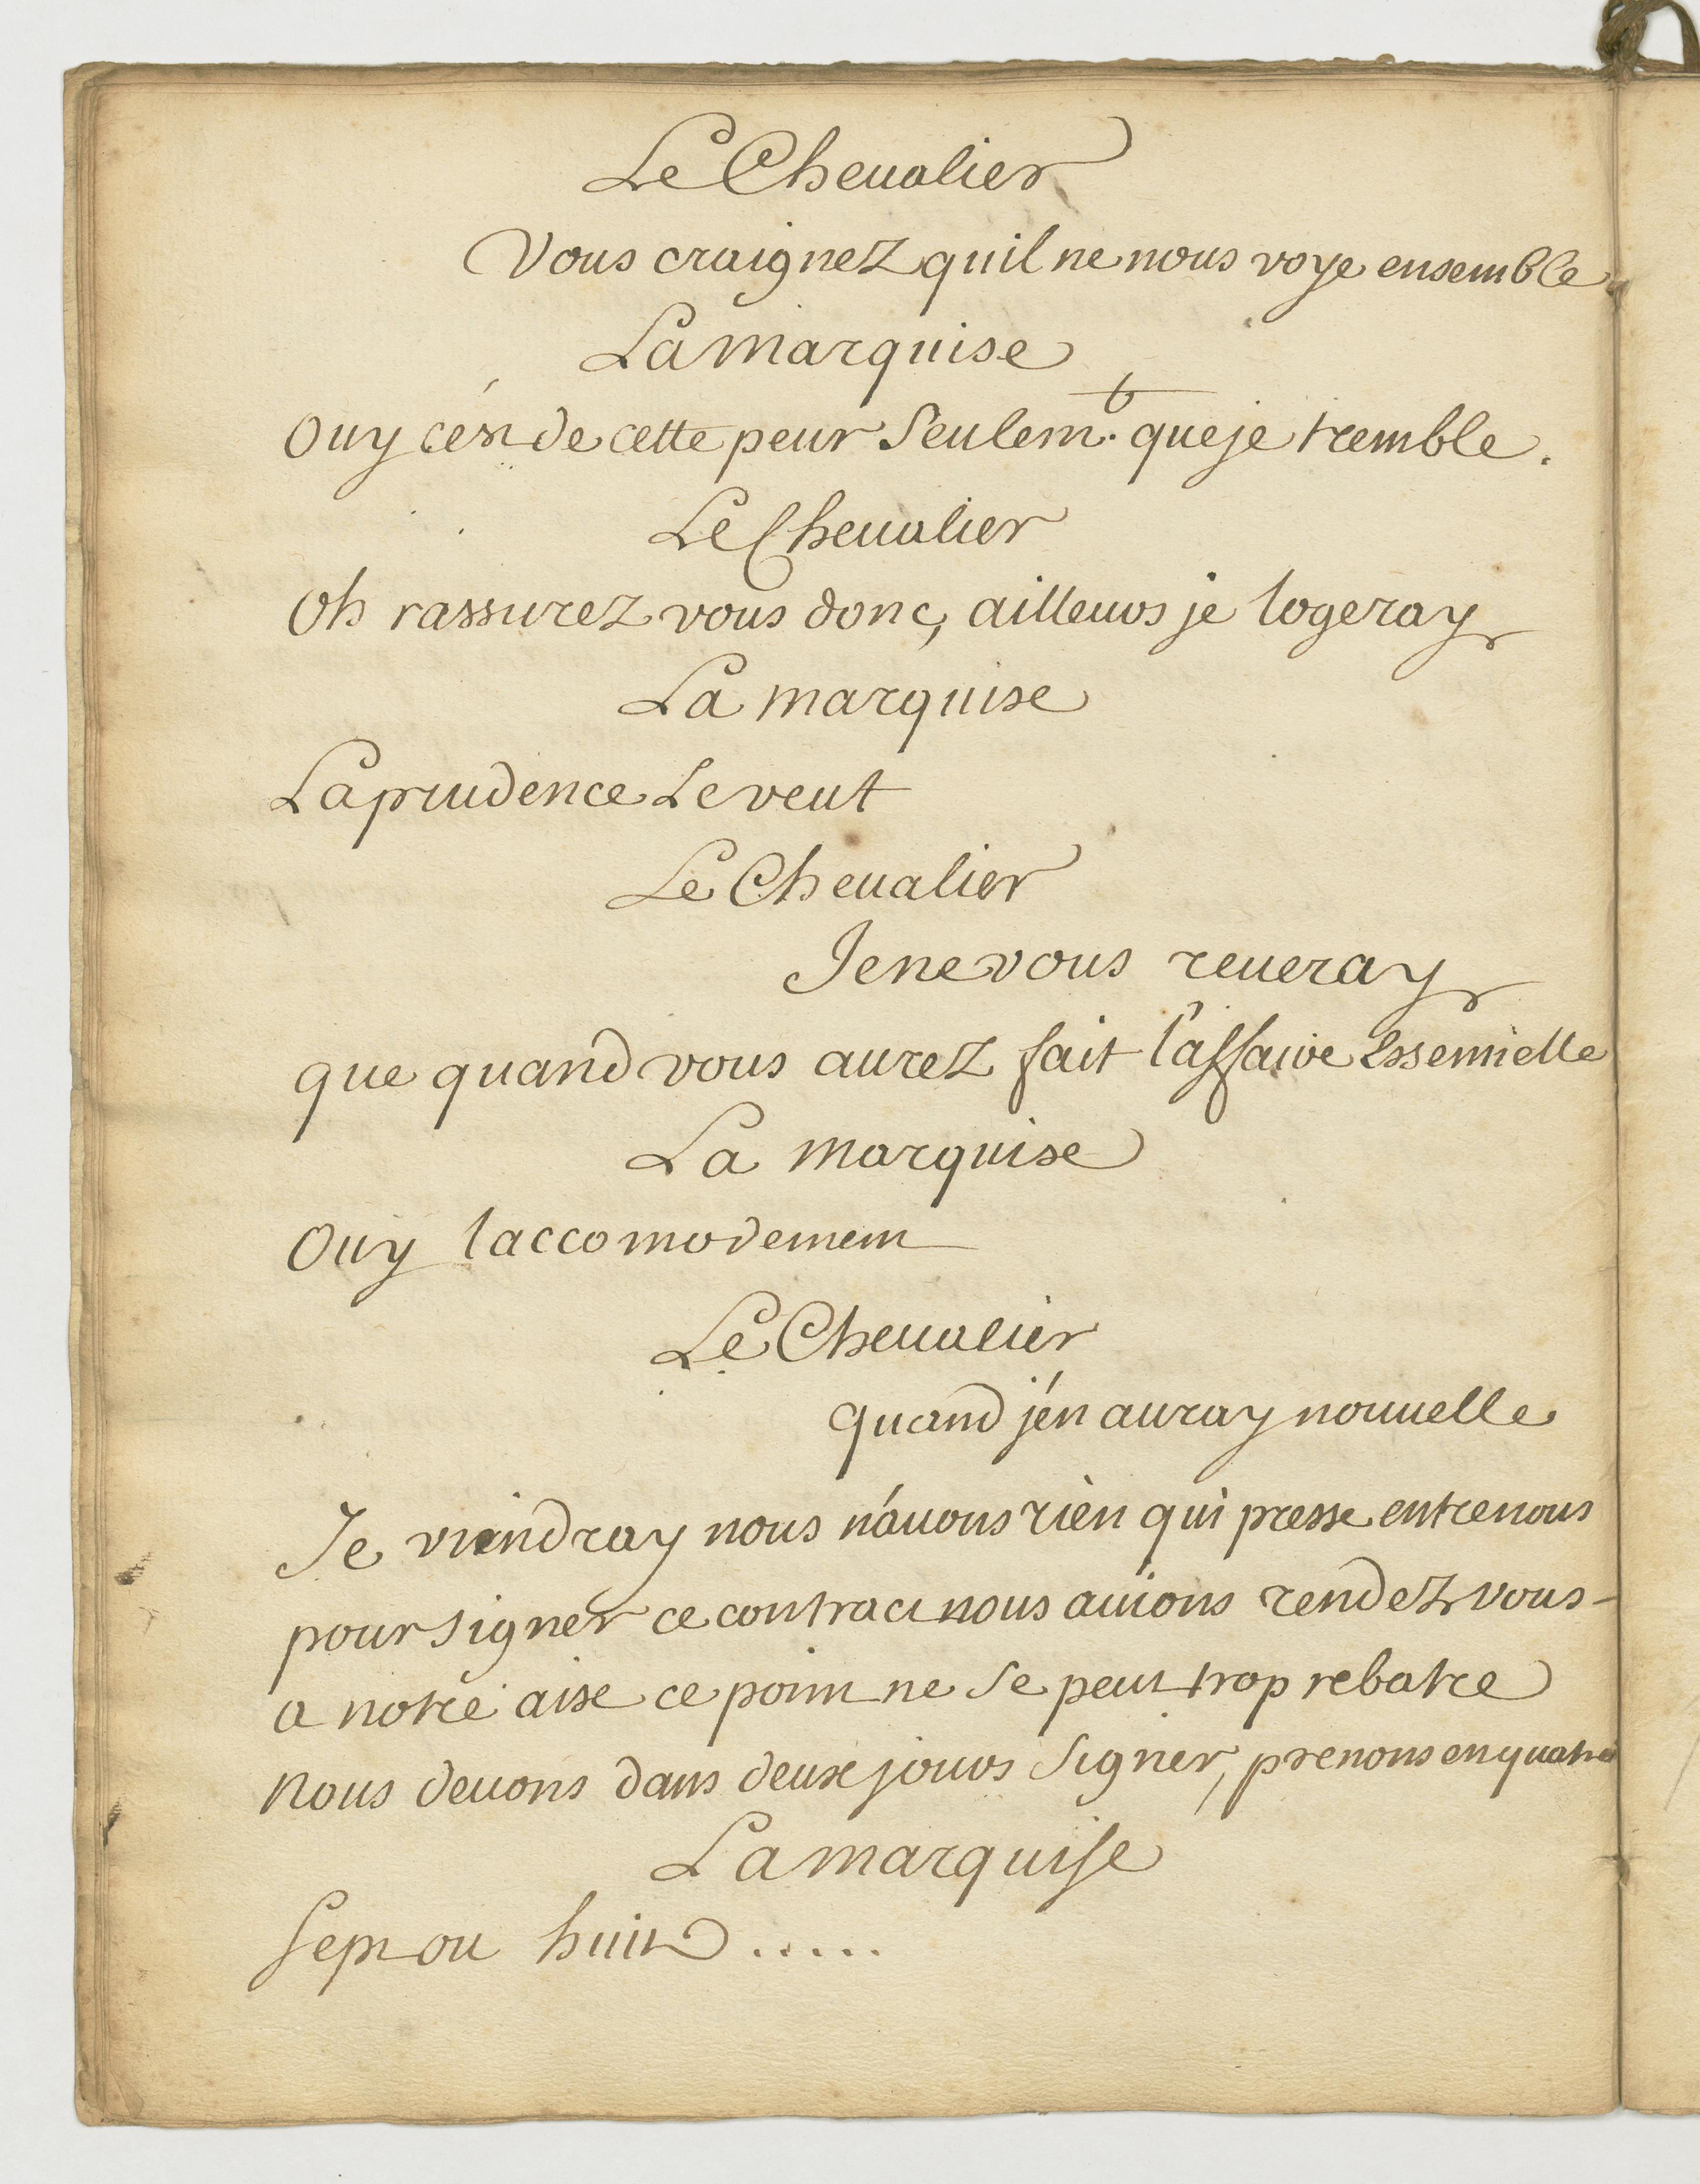 Le Cheualier
Vous craignez quil ne nous voye ensemble
La marquise
Ouy cést de cette peur Seulem.t que je tremble.
Le Cheualier
Oh rassurez vous donc, ailleurs je logeray
La marquise
La prudence Le veut
Le Cheualier
Je ne vous reueray
que quand vous aurez fait l'affaire Essentielle
La marquise
Ouy laccomodement
Le Cheualier
quand jén auray nouuelle
Je viendray nous náuons rien qui presse entre nous
pour signer ce contract nous auions rendez vous
a notre aise ce point ne Se peut trop rebatre
Nous deuons dans deux jours Signer, prenons en quatre
La marquise
Sept ou huit .....